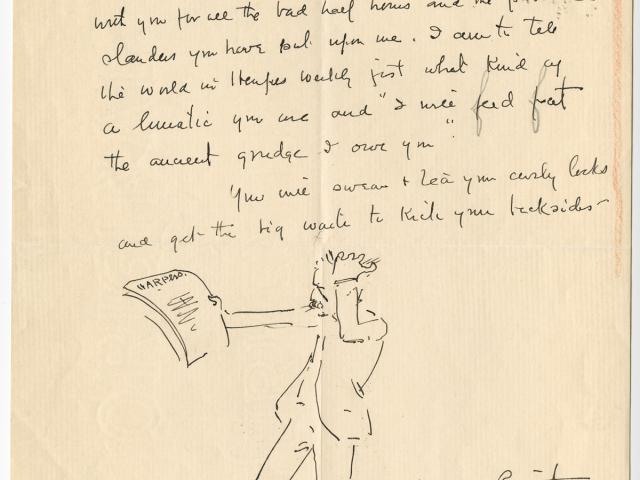 with you for all the bad half hours and the
slanders you have put upon me. I am to tell
the world in Harpers weekly just what kind of
a lunatic you are and "I will feed fat
the ancient grudge I owe you".
You will swear + tear your curly locks
and get the big waste to kick your backsides—
HARPERS.